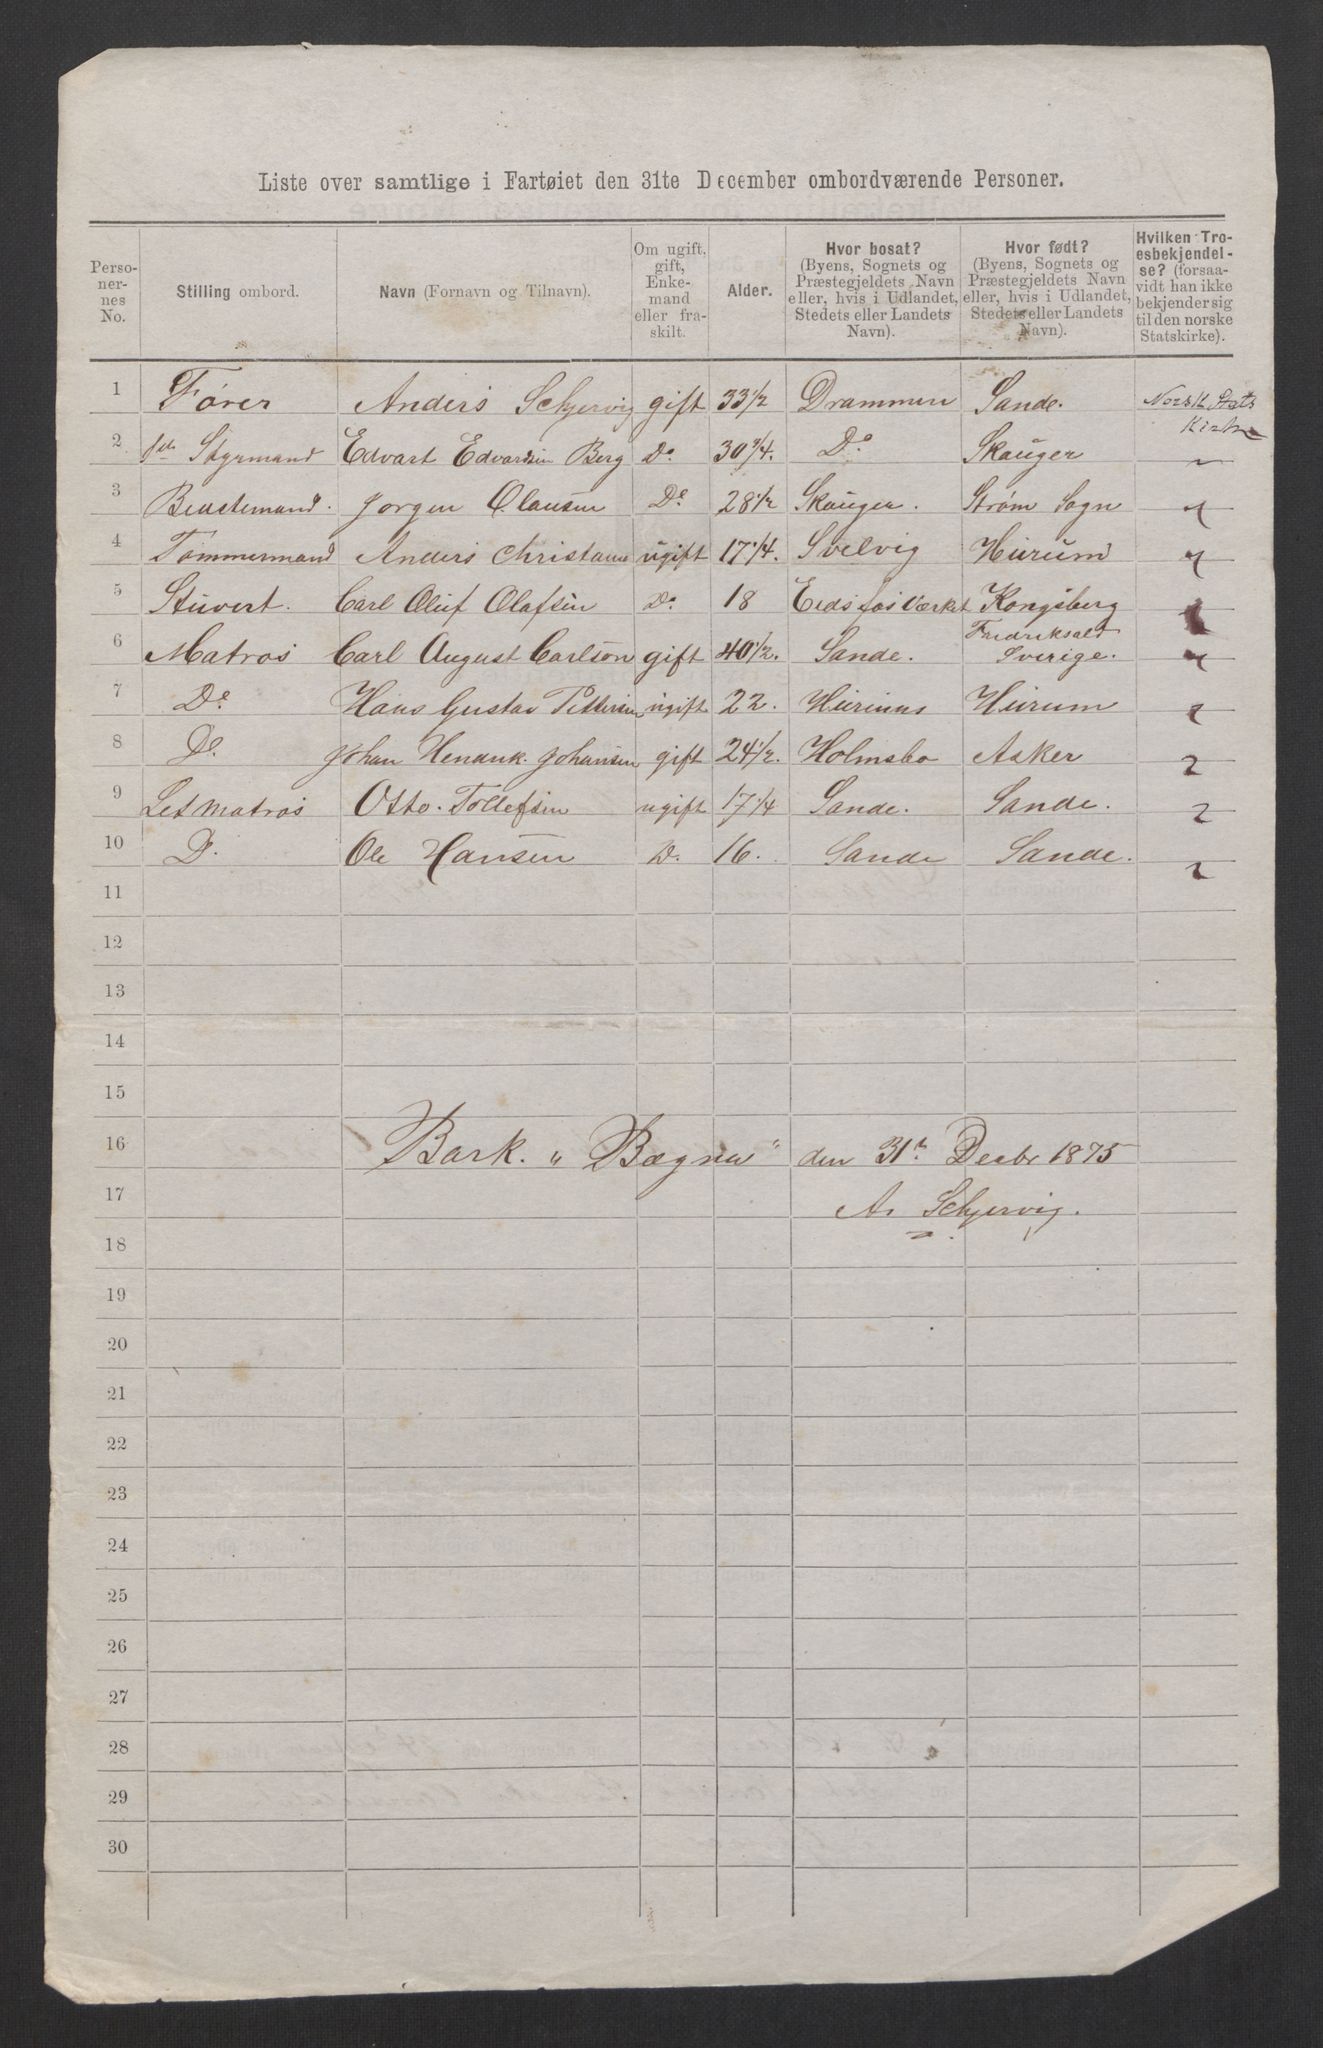 Liste over samtlige i Fartøiet den 31te December ombordværende Personer.
Perso-nernes No. | Stilling ombord. | Navn (Fornavn og Tilnavn). | Om ugift, gift, Enkemand eller fraskilt. | Alder. | Hvor bosat? (Byens, Sognets og Præstegjeldets Navn eller, hvis i Udlandet, Stedets eller Landets Navn). | Hvor født? (Byens, Sognets og Præstegjeldets Navn eller, hvis i Udlandet, Stedets eller Landets Navn). | Hvilken Troesbekjendelse? (forsaavidt han ikke bekjender sig til den norske Statskirke).
1 Fører Anders Schjervig gift 33 1/2 Drammen Sande. Norsk Stats Kirke
2 Styrmand Edvart Edvardsen Berg Do 30 3/4. Do Skauger "
3 Jørgen Olausen Do 28 1/2 Skauger. Strøm Sogn "
4 Tømmermand Anders Christians ugift 17 1/4. Svelvig Hurum "
5 Stuvert. Carl Oluf Olafsen Do 18 Eidsfos Værket Kongsberg "
6 Matros Carl August Carlson gift 40 1/2. Sande. Fredriksald Sverige. "
7 Do Hans Gustav Pettersen ugift 22. Hurum "
8 Do. Johan Hendrik Johansen gift 24 1/2. Holmsbo Asker "
9 Let matros Otto Tollefsen ugift 17 1/4 Sande. Sande. "
10 D. Ole Hansen D. 16. Sande Sande. "
11
12
13
14
15
16 Bark. "Bægna" den 31te Decbr 1875
17 A. Schjervig.
18
19
20
21
22
23
24
25
26
27
28
29
30